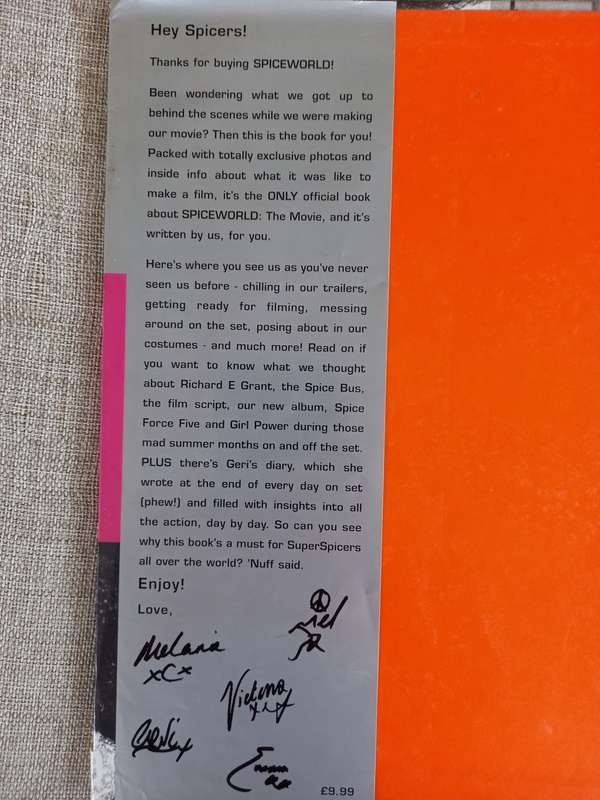 Hey Spicers!
Thanks for buying SPICEWORLD!
Been wondering what we got up to
behind the scenes while we were making
our movie? Then this is the book for you!
Packed with totally exclusive photos and
inside info about what it was like to
make a film, it's the ONLY official book
about SPICEWORLD: The Movie, and it's
written by us, for you.
Here's where you see us as you've never
seen us before - chilling in our trailers,
getting ready for filming, messing
around on the set, posing about in our
costumes - and much more! Read on if
you want to know what we thought
about Richard E Grant, the Spice Bus,
the film script, our new album, Spice
Force Five and Girl Power during those
mad summer months on and off the set.
PLUS there's Geri's diary, which she
wrote at the end of every day on set
(phew!) and filled with insights into all
the action, day by day. So can you see
why this book's a must for SuperSpicers
all over the world? 'Nuff said.
Enjoy!
Love,
Mel
Melanie
xCx
Victoria
Geri x
Emma
£9.99